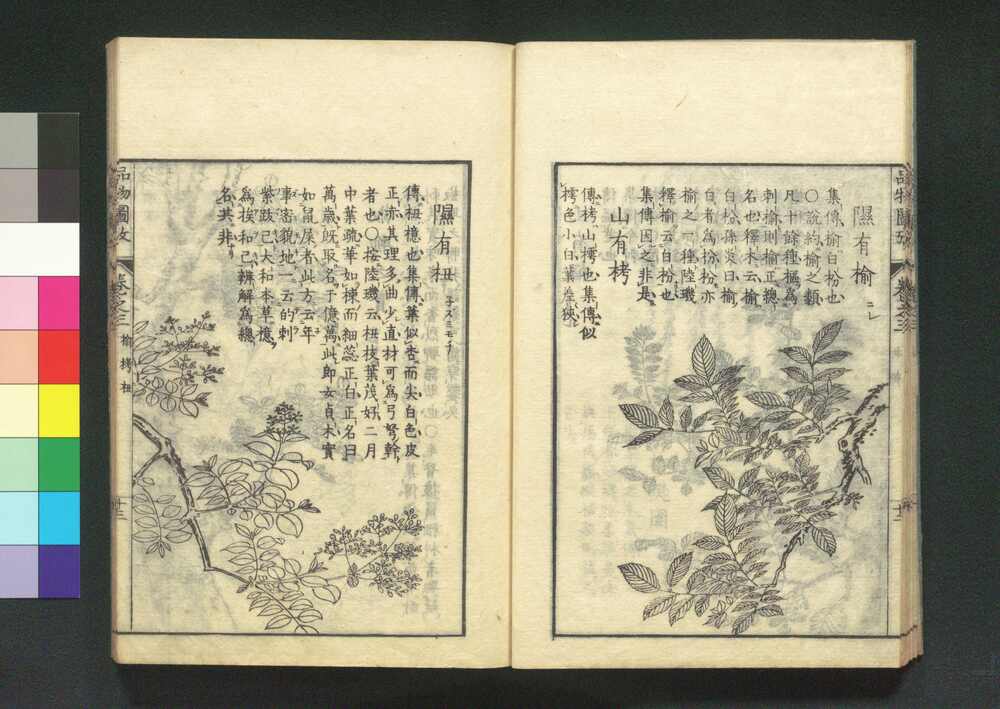 隰有榆 ニレ
集傳榆白枌也
○說約榆之類
凡十餘種樞為
刺榆則榆正總
名也釋木云榆
白枌孫炎曰榆
白者為枌枌亦
榆之一種陸璣
釋榆云白枌也
集傳因之非是
山有栲
傳栲山樗也集傳似
樗色小白葉差狹
隰有杻 子ズミモチ
傳杻檍也集傳葉似杏而尖白色皮
正赤其理多曲少直材可為弓弩幹
者也○按陸璣云杻枝葉茂好二月
中葉疏華如楝而細蕊正白正名曰
萬歲既取名于億萬此即女貞木實
如鼠屎者此方云年
事密貌地一云的刺
紫跋己大和本草檍
為挨和己辨解為總
名共非
品物圖攷 卷之三
榆栲杻